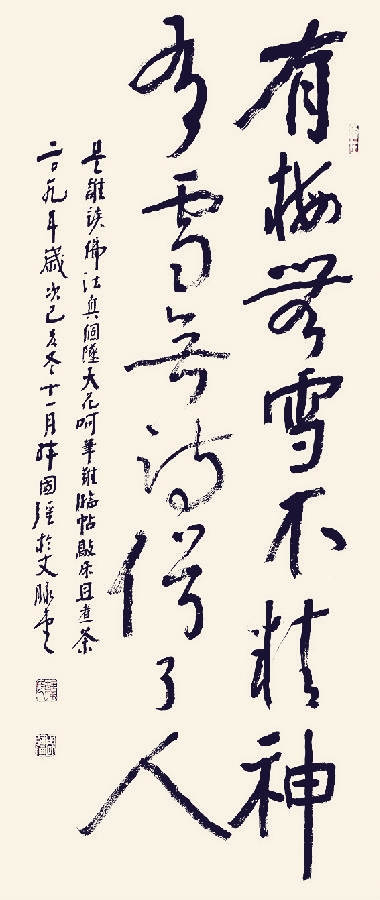 有梅無雪不精神
有雪無詩俗了人
是誰談佛法真個墜天花呵筆難臨帖敲床且煮茶
二〇一九年歲次己亥冬十一月國強於文脉堂